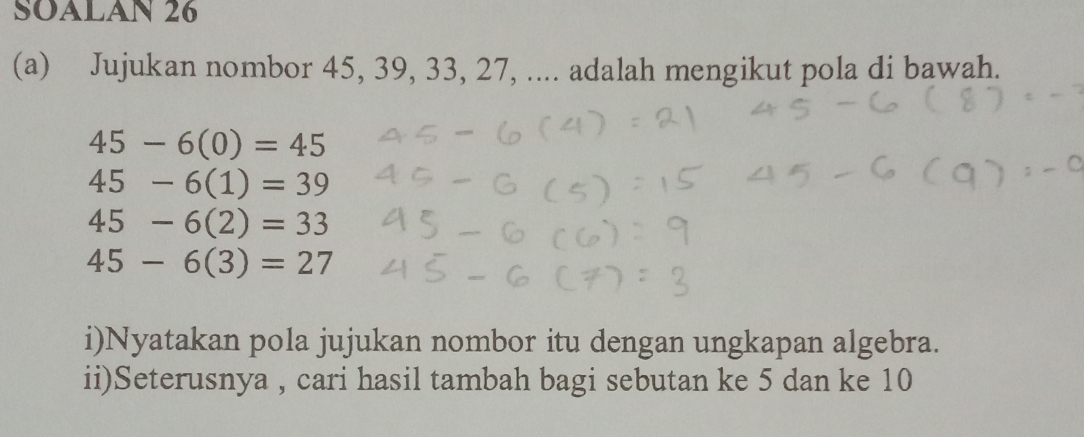 SOALAN 26
(a) Jujukan nombor 45, 39, 33, 27, .... adalah mengikut pola di bawah.
45 - 6(8) = -3
45 − 6(0) = 45 45 - 6(4) = 21
45 − 6(1) = 39 45 - 6(5) = 15 45 - 6(9) = -9
45 − 6(2) = 33 45 - 6(6) = 9
45 − 6(3) = 27 45 - 6(7) = 3
i)Nyatakan pola jujukan nombor itu dengan ungkapan algebra.
ii)Seterusnya , cari hasil tambah bagi sebutan ke 5 dan ke 10